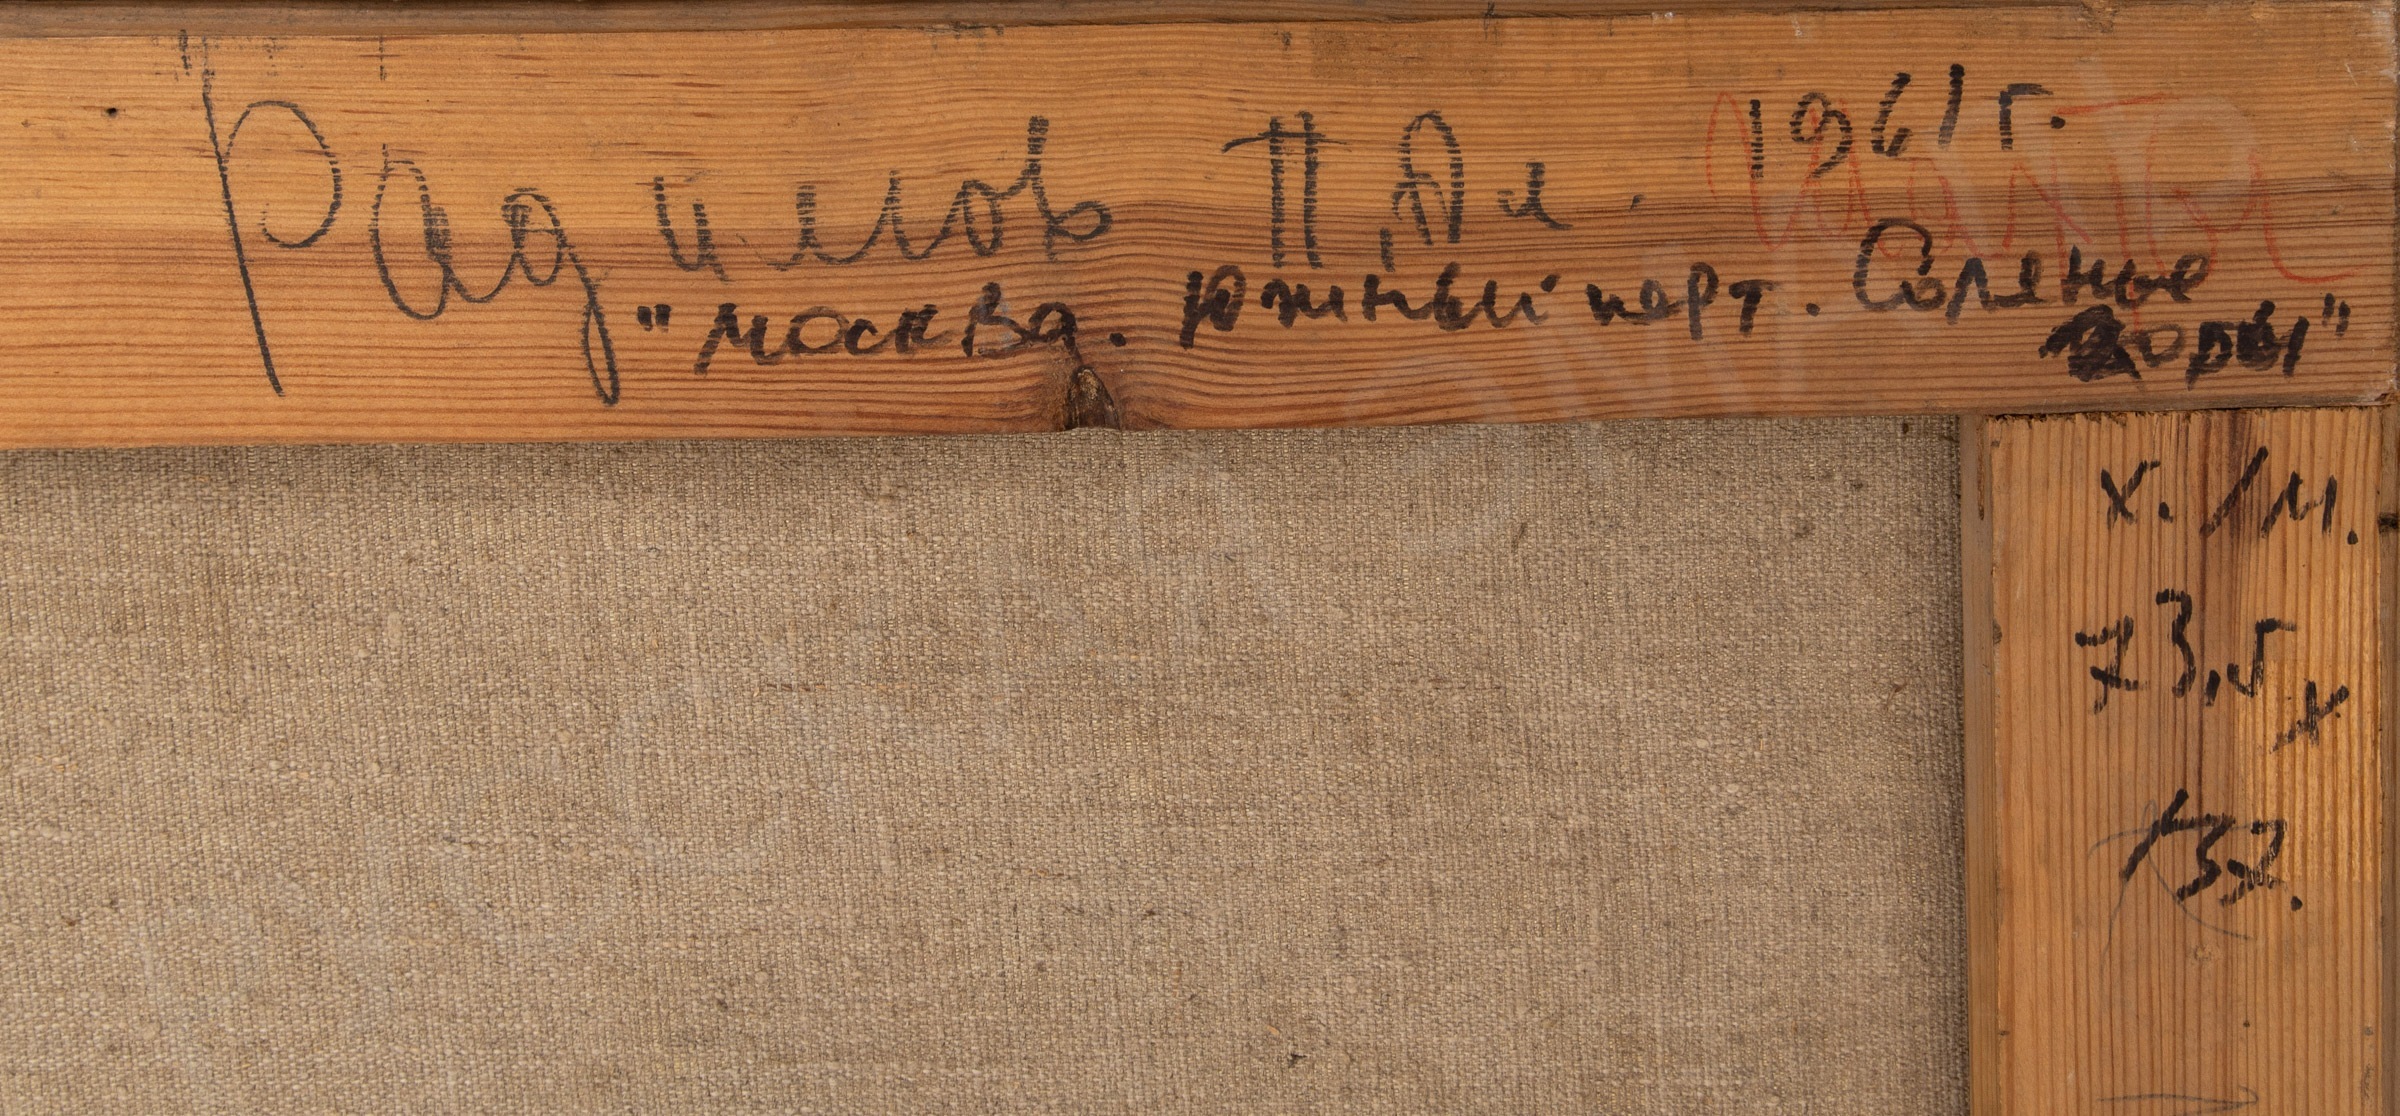 Радимов П.Ал. 1961 г.
"Москва. Южный порт. Соленые
воды"
х./м.
73,5
х
137.